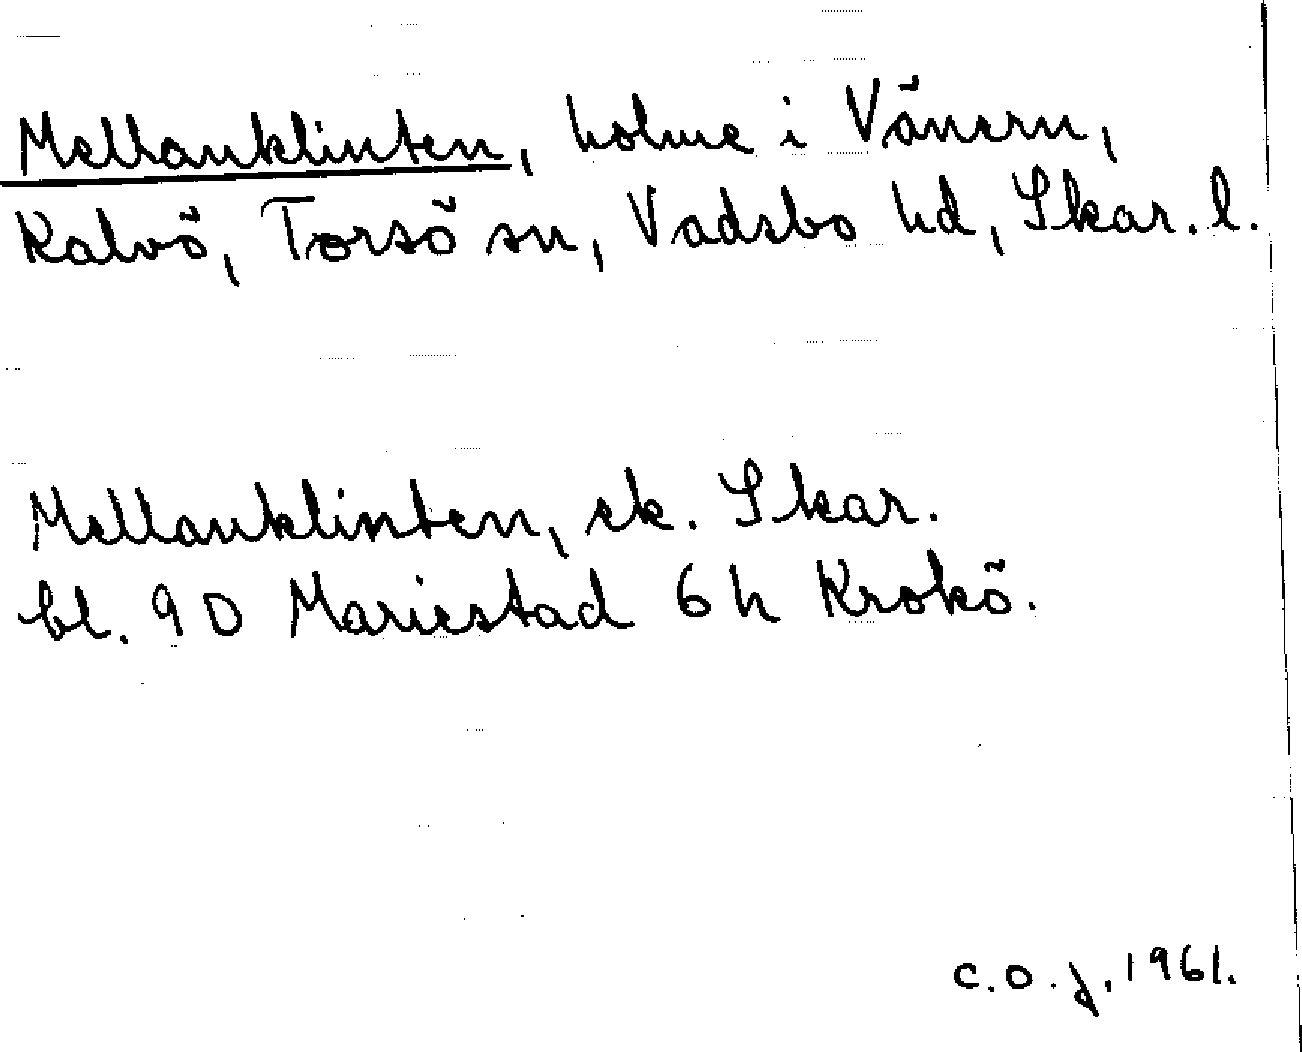 Mellanklinten, holme i Vänern,
Kalvö, Torsö sn, Vadsbo hd, Skar. l.
Mellanklinten, ek. Skar.
bl. 90 Mariestad 6h Krokö.
C.O.J, 1961.